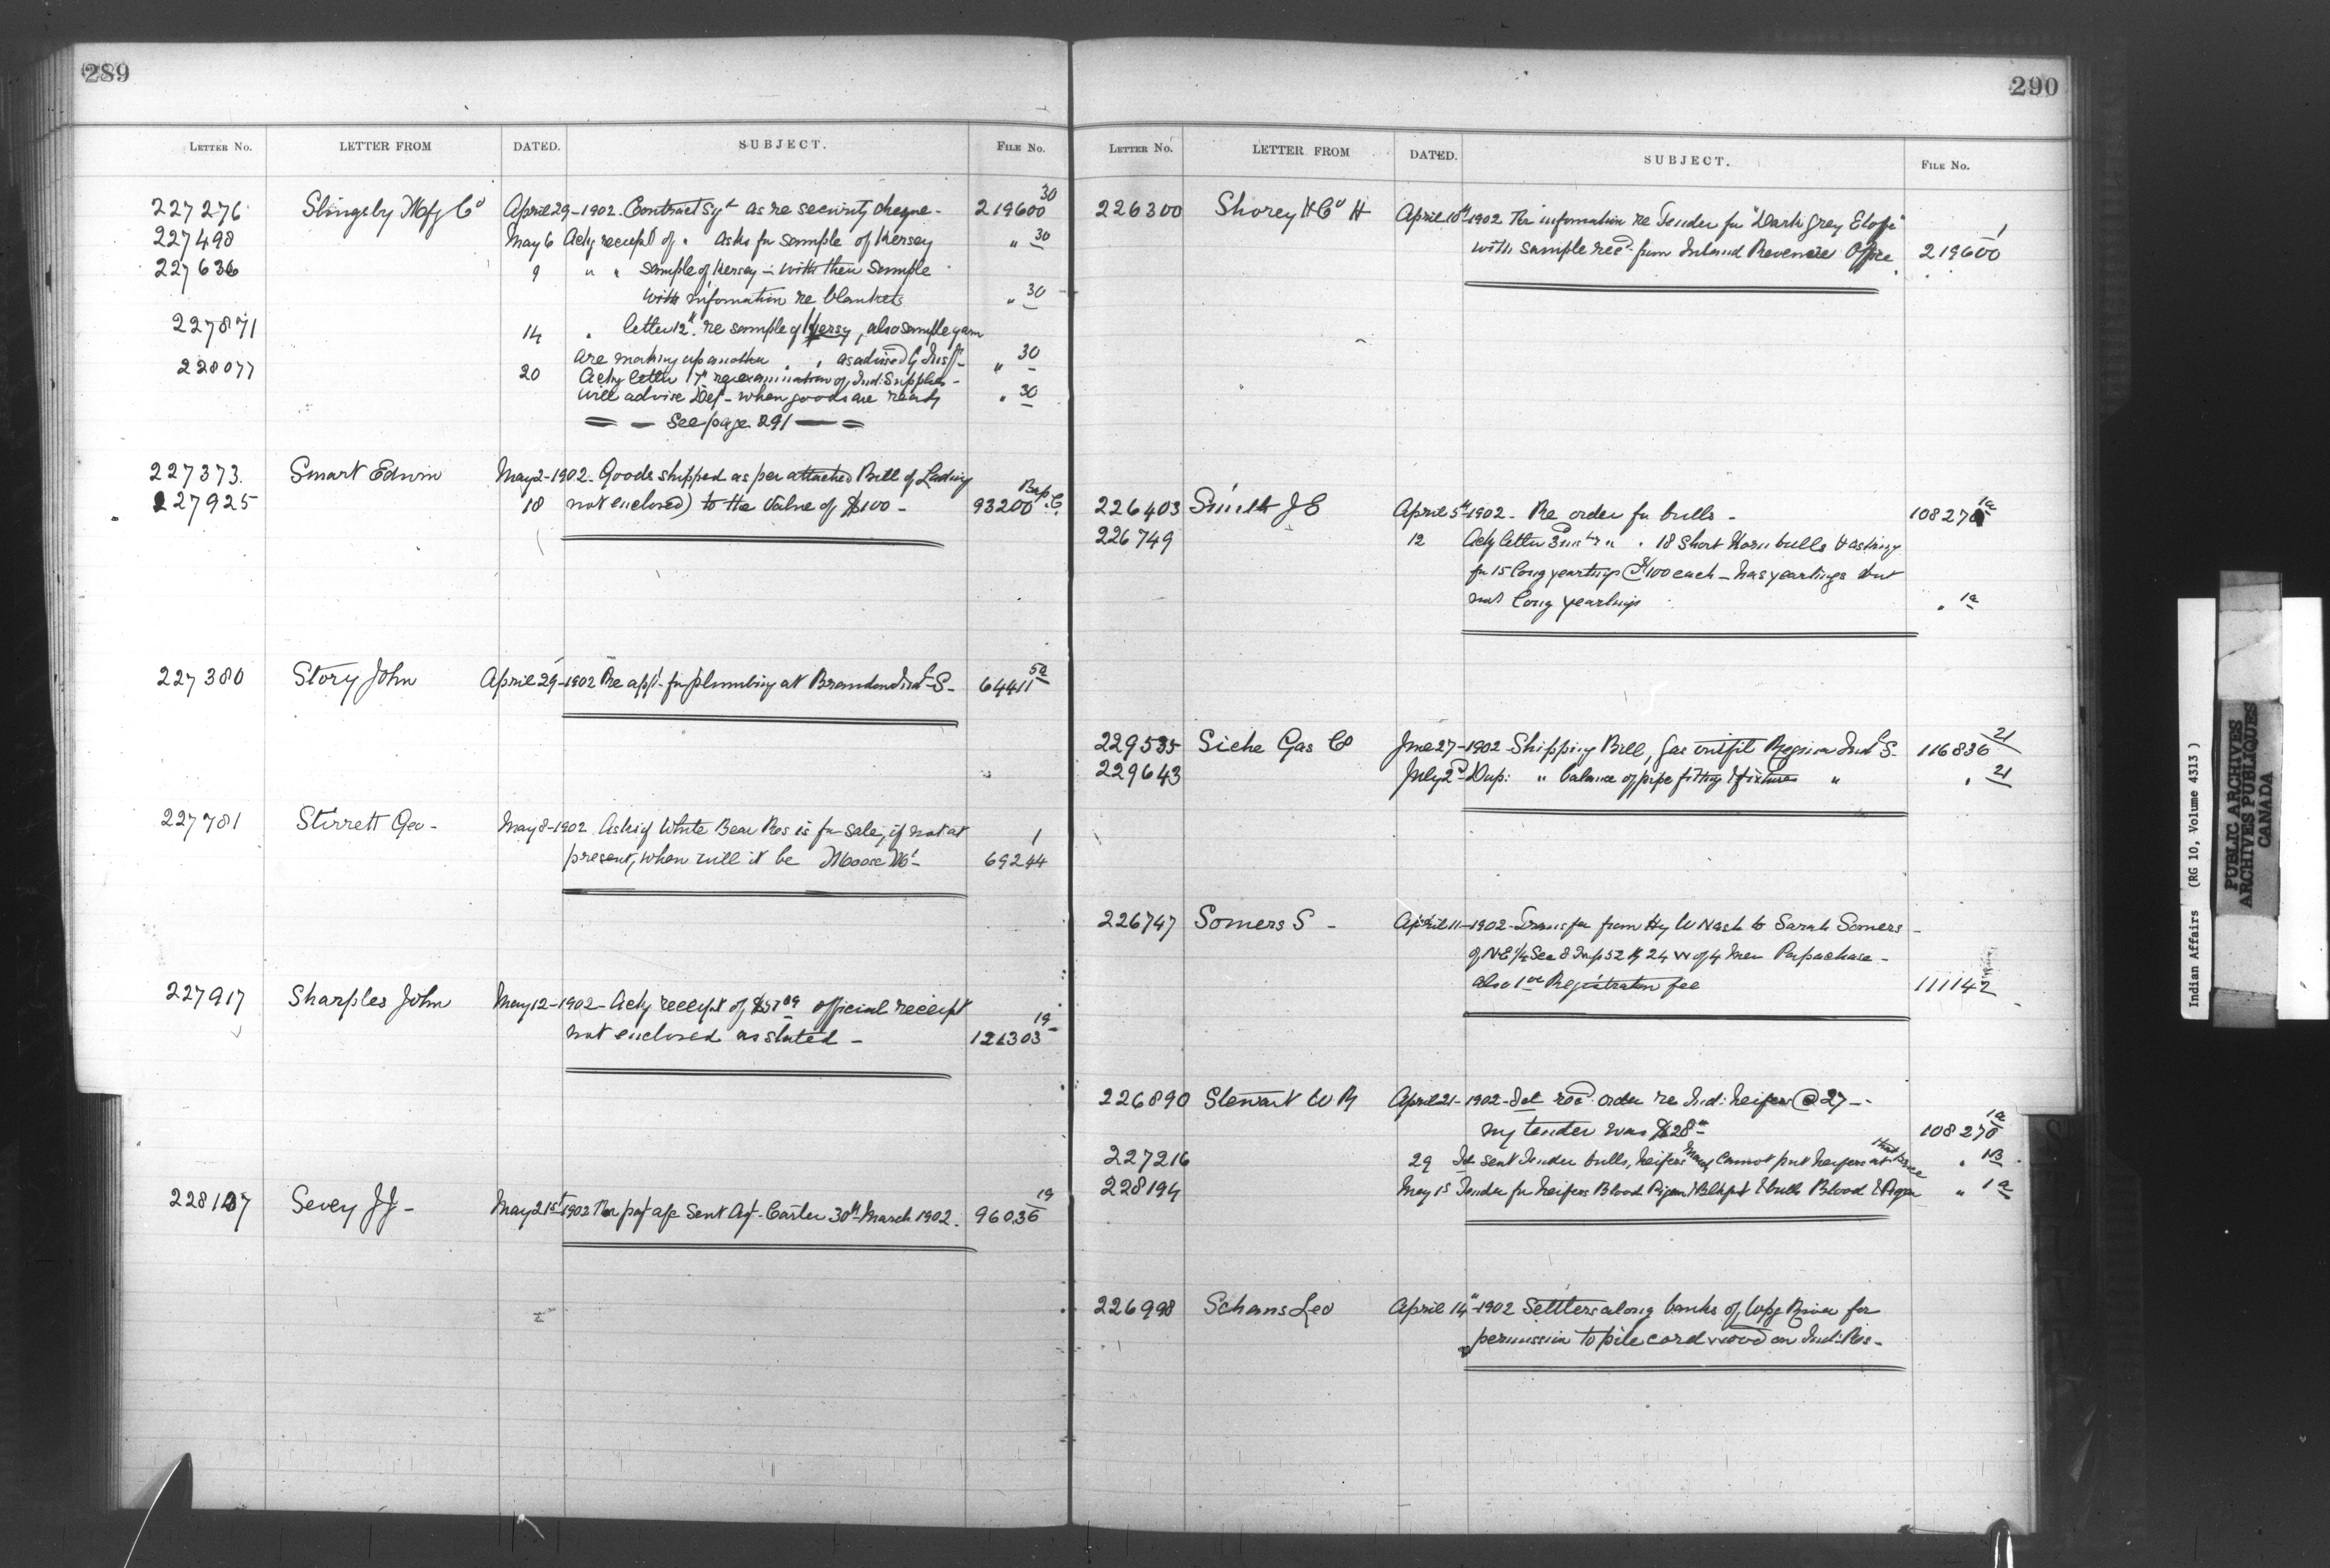 289
LETTER NO. LETTER FROM DATED. SUBJECT. FILE NO.
227276 Slingsby Mfg Co April 29-1902. Contract sgd as re security cheque - 219600 30
227498 May 6 Ackg receipt of " asks for sample of Kersey " 30
227636 9 " " sample of Kersey - with their sample
with information re blankets " 30
227871 14 " letter 12th re sample of Kersey, also sample yarn
are making up another " " as advised by Insp. " 30
228077 20 Ackg letter 17th re examination of Ind: Supplies -
will advise Dept - when goods are ready " 30
See page 291
227373. Smart Edwin May 2-1902- Goods shipped as per attached Bill of Lading
227925 18 not enclosed) to the Value of $100 - 93200
227380 Story John April 29-1902 Re appt. for plumbing at Brandon Indl S- 64411 5a
227781 Stirrett Geo - May 8-1902 Asks if White Bear Res is for sale, if not at 1
present, when will it be Moose Mt - 69244
227917 Sharples John May 12-1902- Ackg receipt of official receipt
not enclosed as stated - 121303 19
228137 Sevey J J - May 21st 1902 For pay a/c Sent Agt. Carter 30th March 1902. 96036 19
290
LETTER NO. LETTER FROM DATED. SUBJECT. FILE NO.
226300 Shorey H & Co H April 10th 1902 For information re Tender for "Dark Grey Etoffe" 1
with sample recd. from Inland Revenue Office. 219600
226403 Smith J E April 5th 1902 - Re order for bulls - 108270 1a
226749 12 Ackg letter " . 18 Short Horn bulls & asking
for 15 long yearlings @ $100 each - has yearlings but
not long yearlings " 1a
229535 Siche Gas Co June 27-1902 Shipping Bill, Gas outfit Regina Indl S- 116836 21
229643 July 2d Dup: " balance of pipe fitting & fixtures " " 21
226747 Somers S - April 11-1902- Transfer from Hy W Nash to Sarah Somers -
of N.E 1/4 Sec 8 Twp 52 R 24 W of 4 Mer Papachase -
also 1 00 Registration fee 111142
226890 Stewart W R April 21-1902- Tel recd order re Ind: heifers @ 27 -
my tender was $28 108270 1a
227216 29 Tel sent Tender bulls, heifers cannot put heifers at that price
228194 May 15 Tender for heifers Blood Piegan & Blkft & bulls Blood & Piegan " 1a
226998 Schans Leo April 14th 1902 Settlers along banks of Wpg River for
permission to pile cord wood on Ind: Res -
Indian Affairs (RG 10, Volume 4313)
PUBLIC ARCHIVES
ARCHIVES PUBLIQUES
CANADA